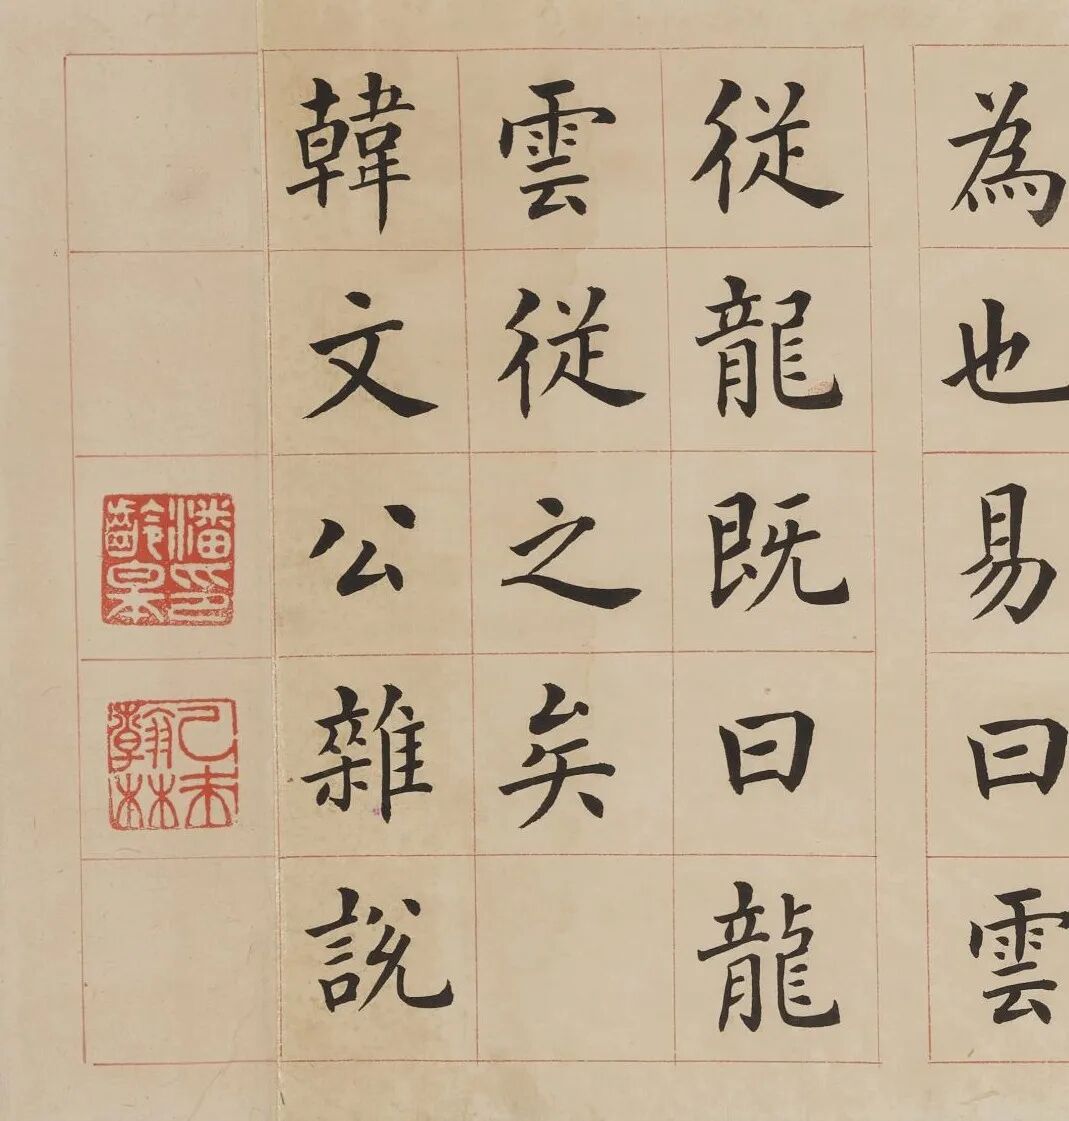 為也易曰雲
從龍既曰龍
雲從之矣
韓文公雜說
潘印齡皋
乙未翰林